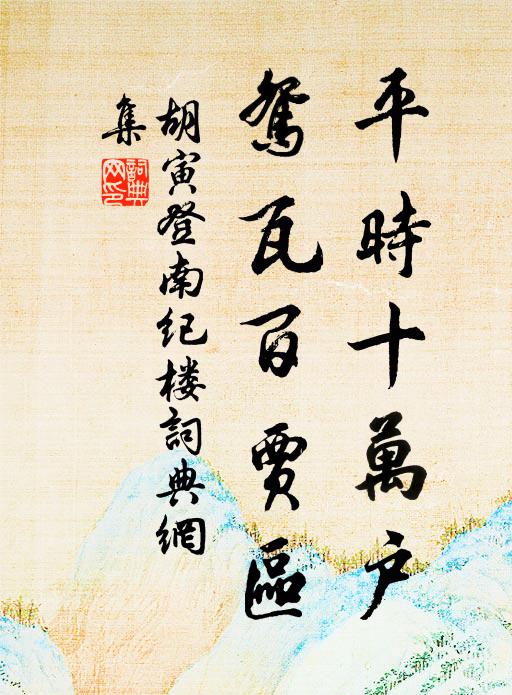 平時十萬户
鴛瓦百賈區
胡寅登南纪楼詞典網
集
詞典网印